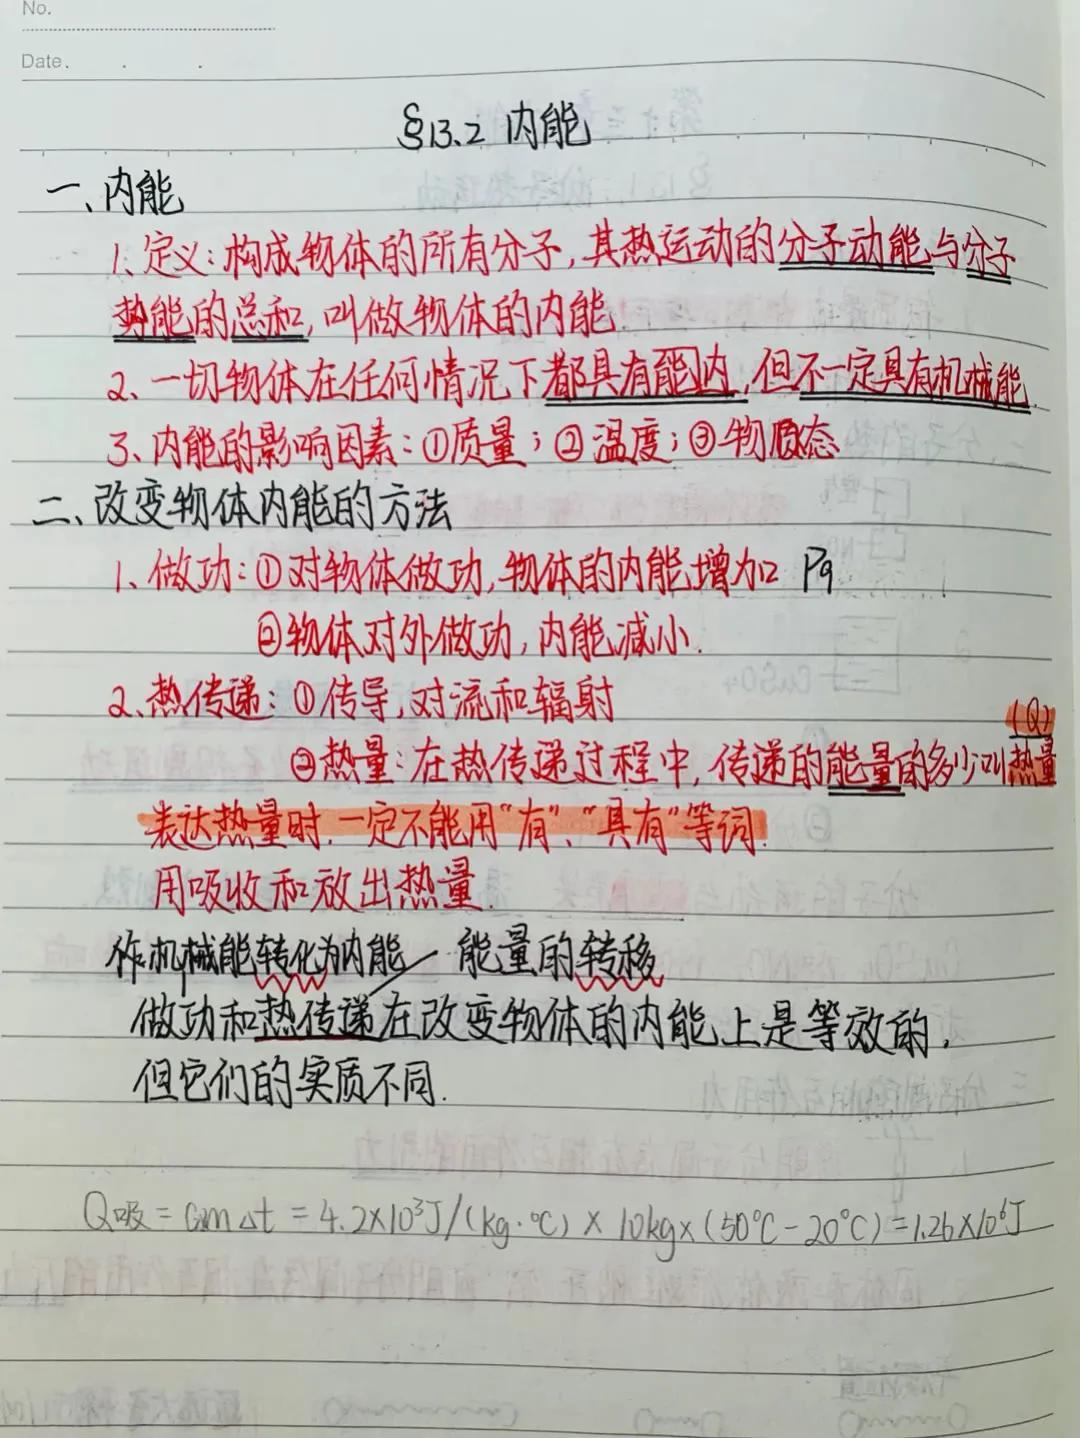 No.
Date.
§13.2 内能
一、内能
1、定义：构成物体的所有分子，其热运动的分子动能与分子
势能的总和，叫做物体的内能
2、一切物体在任何情况下都具有能内，但不一定具有机械能.
3、内能的影响因素：①质量；②温度；③物质态
二、改变物体内能的方法
1、做功：①对物体做功，物体的内能增加 P9
②物体对外做功，内能减小.
2、热传递：①传导，对流和辐射
(Q)
②热量：在热传递过程中，传递的能量的多少叫热量
表达热量时，一定不能用“有”、“具有”等词.
用吸收和放出热量.
作机械能转化为内能 能量的转移
做功和热传递在改变物体的内能上是等效的，
但它们的实质不同.
Q吸=cm△t=4.2×10³J/(kg·℃)×10kg×(50℃-20℃)=1.26×10⁶J